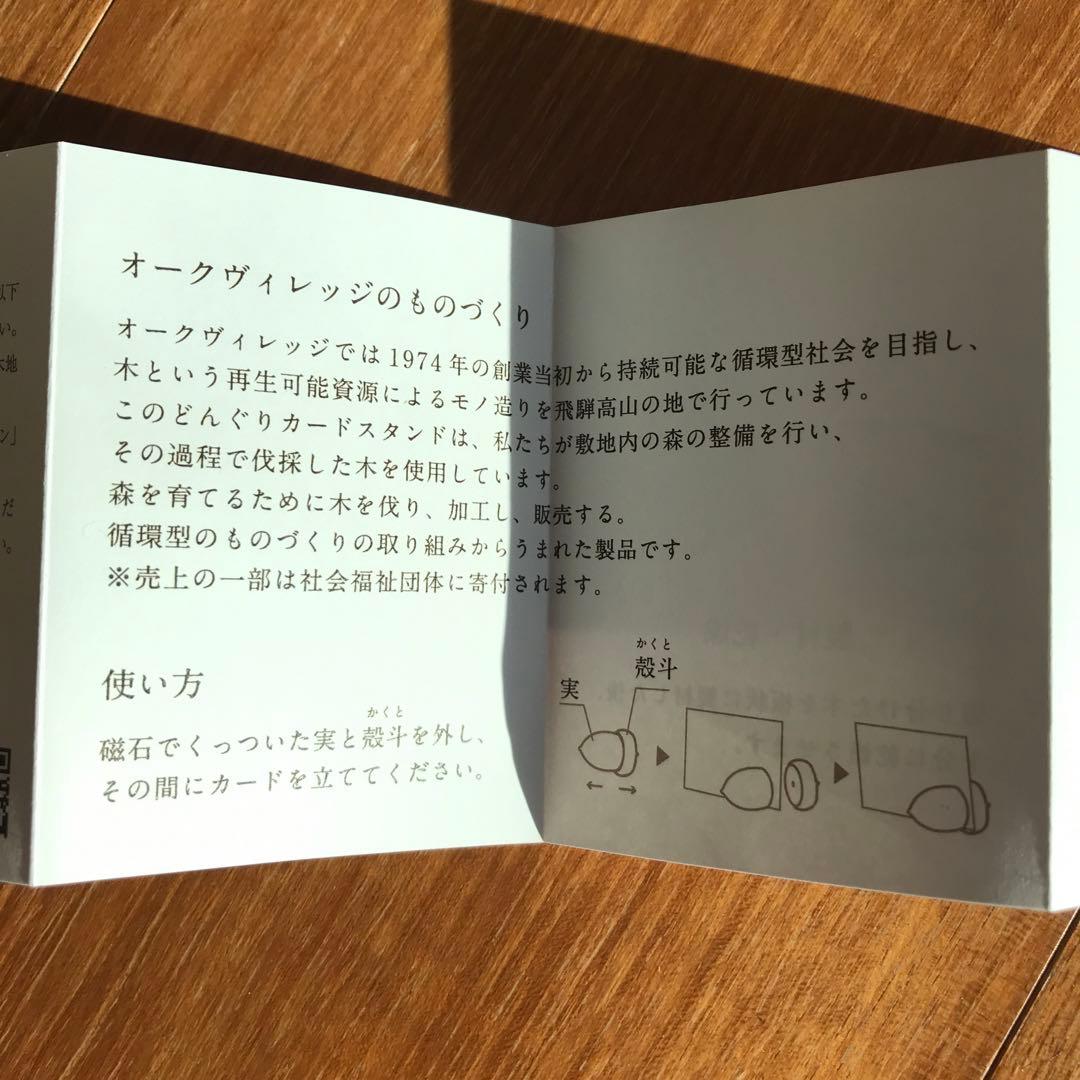 以下
い。
木地
ン」
だ
い。
オークヴィレッジのものづくり
オークヴィレッジでは1974年の創業当初から持続可能な循環型社会を目指し、
木という再生可能資源によるモノ造りを飛騨高山の地で行っています。
このどんぐりカードスタンドは、私たちが敷地内の森の整備を行い、
その過程で伐採した木を使用しています。
森を育てるために木を伐り、加工し、販売する。
循環型のものづくりの取り組みからうまれた製品です。
※売上の一部は社会福祉団体に寄付されます。
使い方
かくと
磁石でくっついた実と殻斗を外し、
その間にカードを立ててください。
かくと
殻斗
実